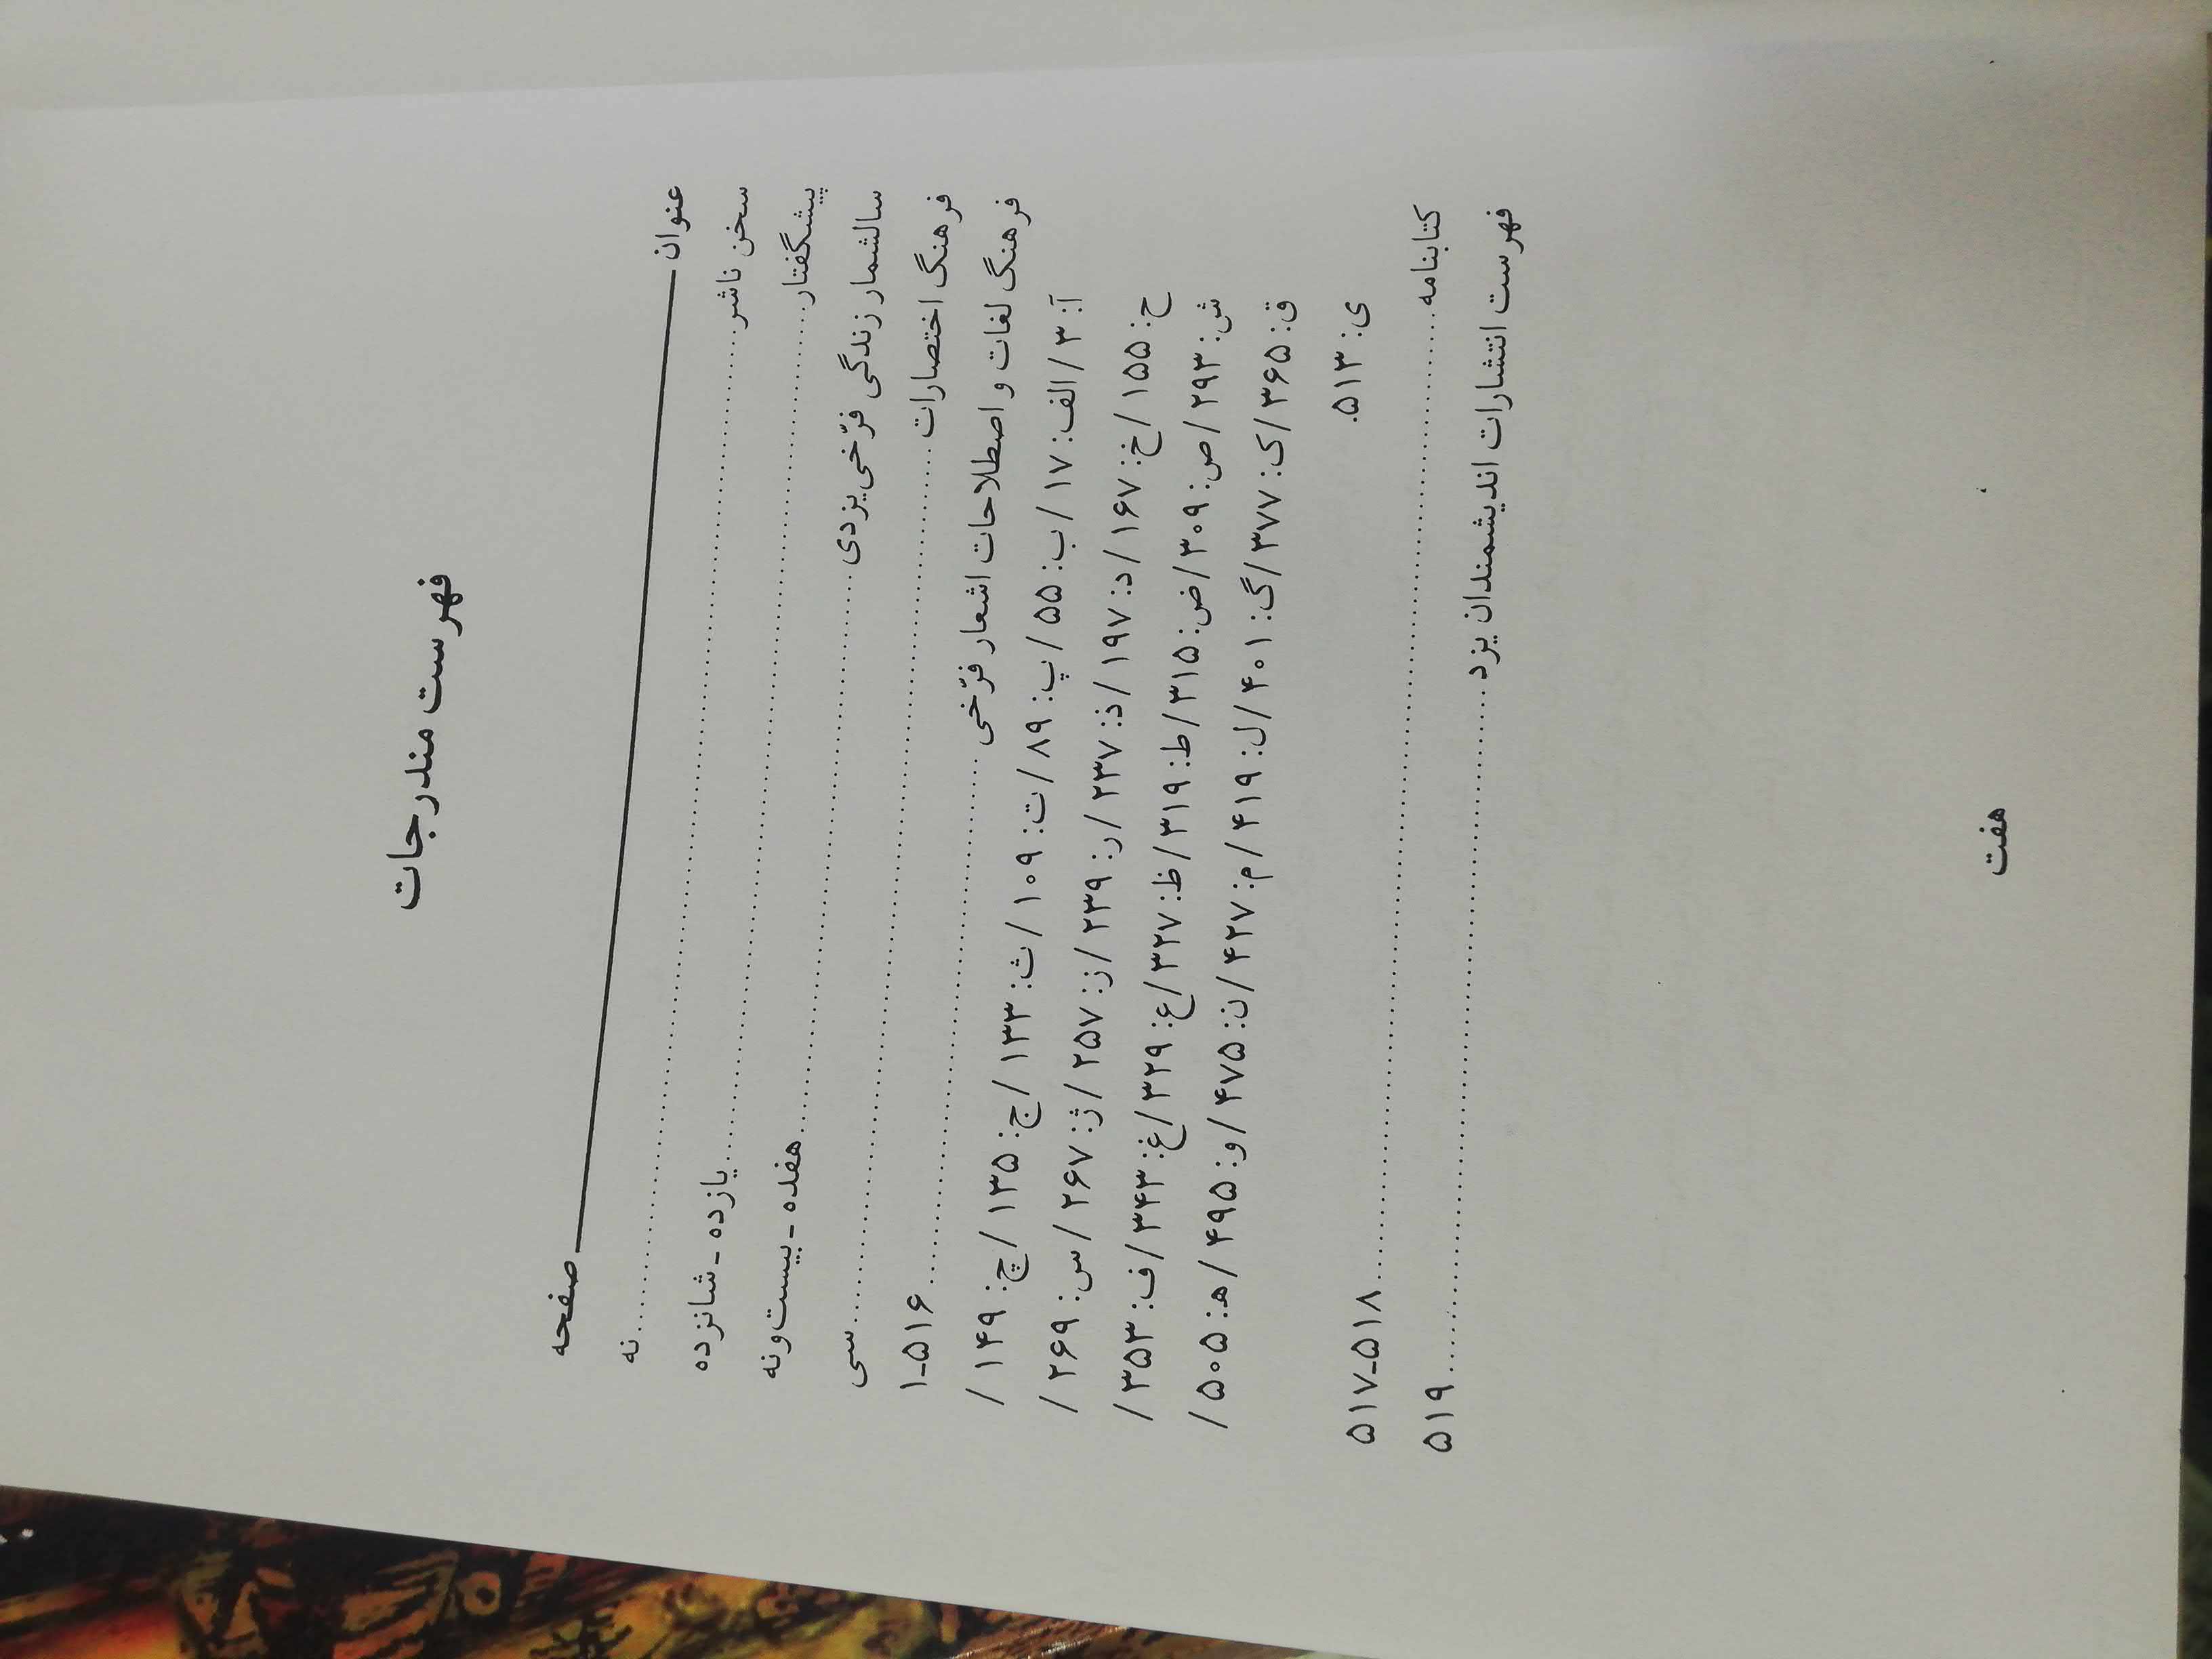 فهرست مندرجات
عنوان صفحه
سخن ناشر ........ نه
پیشگفتار ........ یازده ـ شانزده
سالشمار زندگی فرّخی یزدی ........ هفده ـ بیست‌ونه
فرهنگ اختصارات ........ سی
فرهنگ لغات و اصطلاحات اشعار فرّخی ........ ۱-۵۱۶
آ: ۳ / الف: ۱۷ / ب: ۵۵ / پ: ۸۹ / ت: ۱۰۹ / ث: ۱۳۳ / ج: ۱۳۵ / چ: ۱۴۹ /
ح: ۱۵۵ / خ: ۱۶۷ / د: ۱۹۷ / ذ: ۲۳۷ / ر: ۲۳۹ / ز: ۲۵۷ / ژ: ۲۶۷ / س: ۲۶۹ /
ش: ۲۹۳ / ص: ۳۰۹ / ض: ۳۱۵ / ط: ۳۱۹ / ظ: ۳۲۷ / ع: ۳۲۹ / غ: ۳۴۳ / ف: ۳۵۳ /
ق: ۳۶۵ / ک: ۳۷۷ / گ: ۴۰۱ / ل: ۴۱۹ / م: ۴۲۷ / ن: ۴۷۵ / و: ۴۹۵ / هـ: ۵۰۵ /
ی: ۵۱۳.
کتابنامه ........ ۵۱۷-۵۱۸
فهرست انتشارات اندیشمندان یزد ........ ۵۱۹
هفت